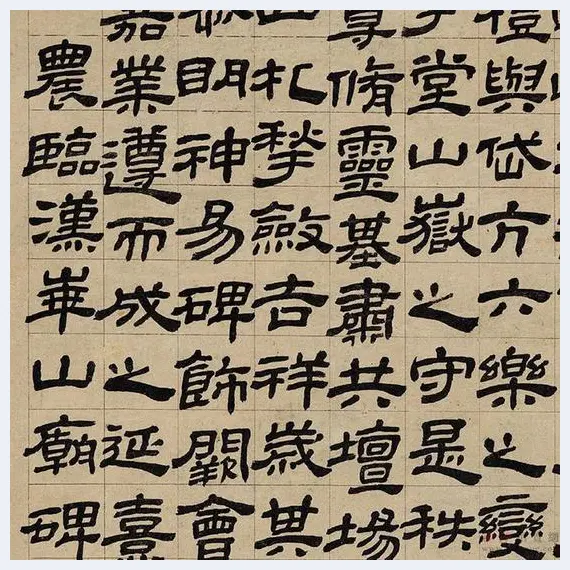 禮與岱亢六樂之變
宇堂山嶽之守是秩
尊脩靈基肅共壇場
凶札揫斂吉祥歲其
明神易碑飾闕會
嘉業遵而成之延熹
農臨漢華山廟碑